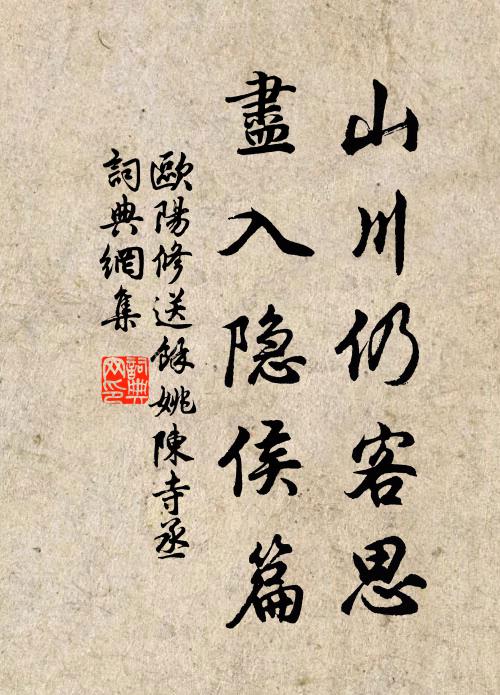 山川仍客思
盡入隐侯篇
歐陽修送餘姚陳寺丞
詞典網集
詞典網印